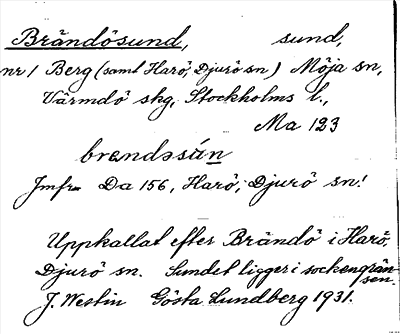 Brändösund, sund,
nr 1 Berg (samt Harö, Djurö sn) Möja sn,
Värmdö skg, Stockholms l.,
Ma 123
brandəsún
Jmfr Da 156, Harö, Djurö sn!
Uppkallat efter Brändö i Harö,
Djurö sn. Sundet ligger i sockengrän
sen.
J. Westin Gösta Lundberg 1931.